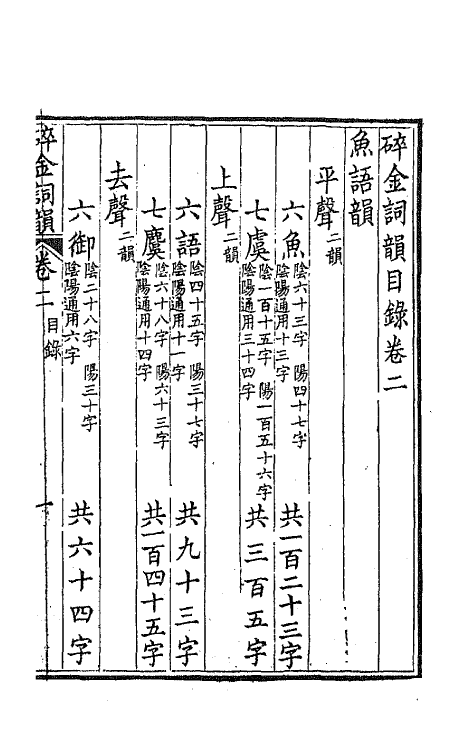 碎金詞韻目錄卷二
魚語韻
平聲二韻
六魚陰六十三字 陽四十七字
陰陽通用十三字 共一百二十三字
七虞陰一百十五字 陽一百五十六字
陰陽通用三十四字 共三百五字
上聲二韻
六語陰四十五字 陽三十七字
陰陽通用十一字 共九十三字
七麌陰六十八字 陽六十三字
陰陽通用十四字 共一百四十五字
去聲二韻
六御陰二十八字 陽三十字
陰陽通用六字 共六十四字
碎金詞韻 卷二 目錄 一